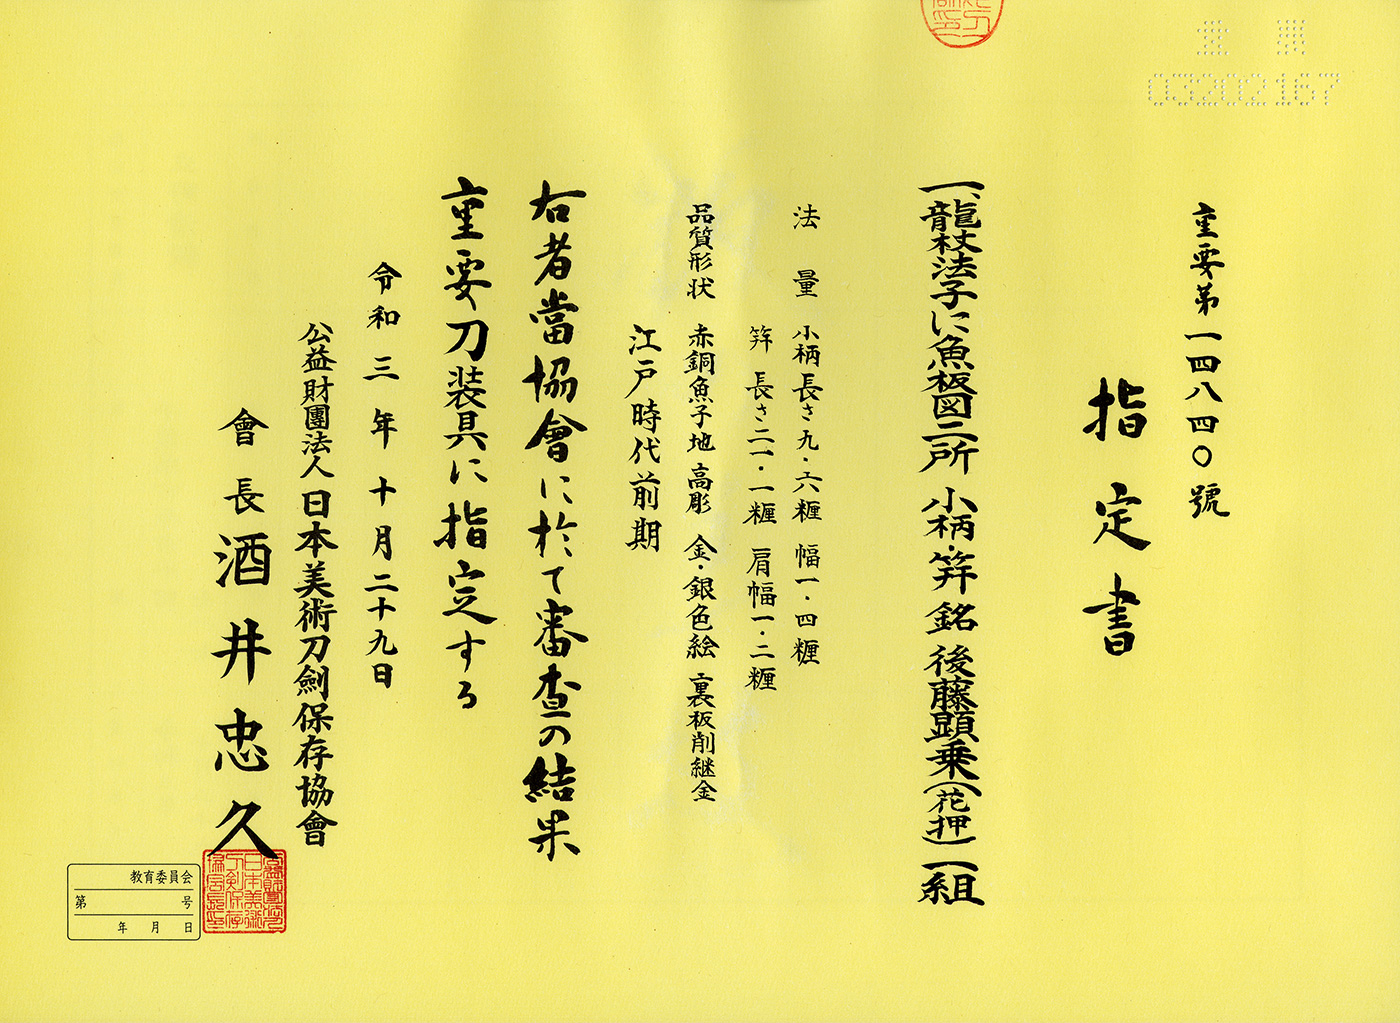 重要第一四八四〇號
指定書
一、龍杖法子に魚板図二所 小柄・笄 銘 後藤顕乗(花押) 一組
法量 小柄長さ九・六糎 幅一・四糎
笄 長さ二一・一糎 肩幅一・二糎
品質形状 赤銅魚子地 高彫 金・銀色絵 裏板削継金
江戸時代前期
右者當協會に於て審査の結果
重要刀装具に指定する
令和三年十月二十九日
公益財團法人日本美術刀劍保存協會
會長 酒井忠久
教育委員会
第 号
年 月 日
03202167